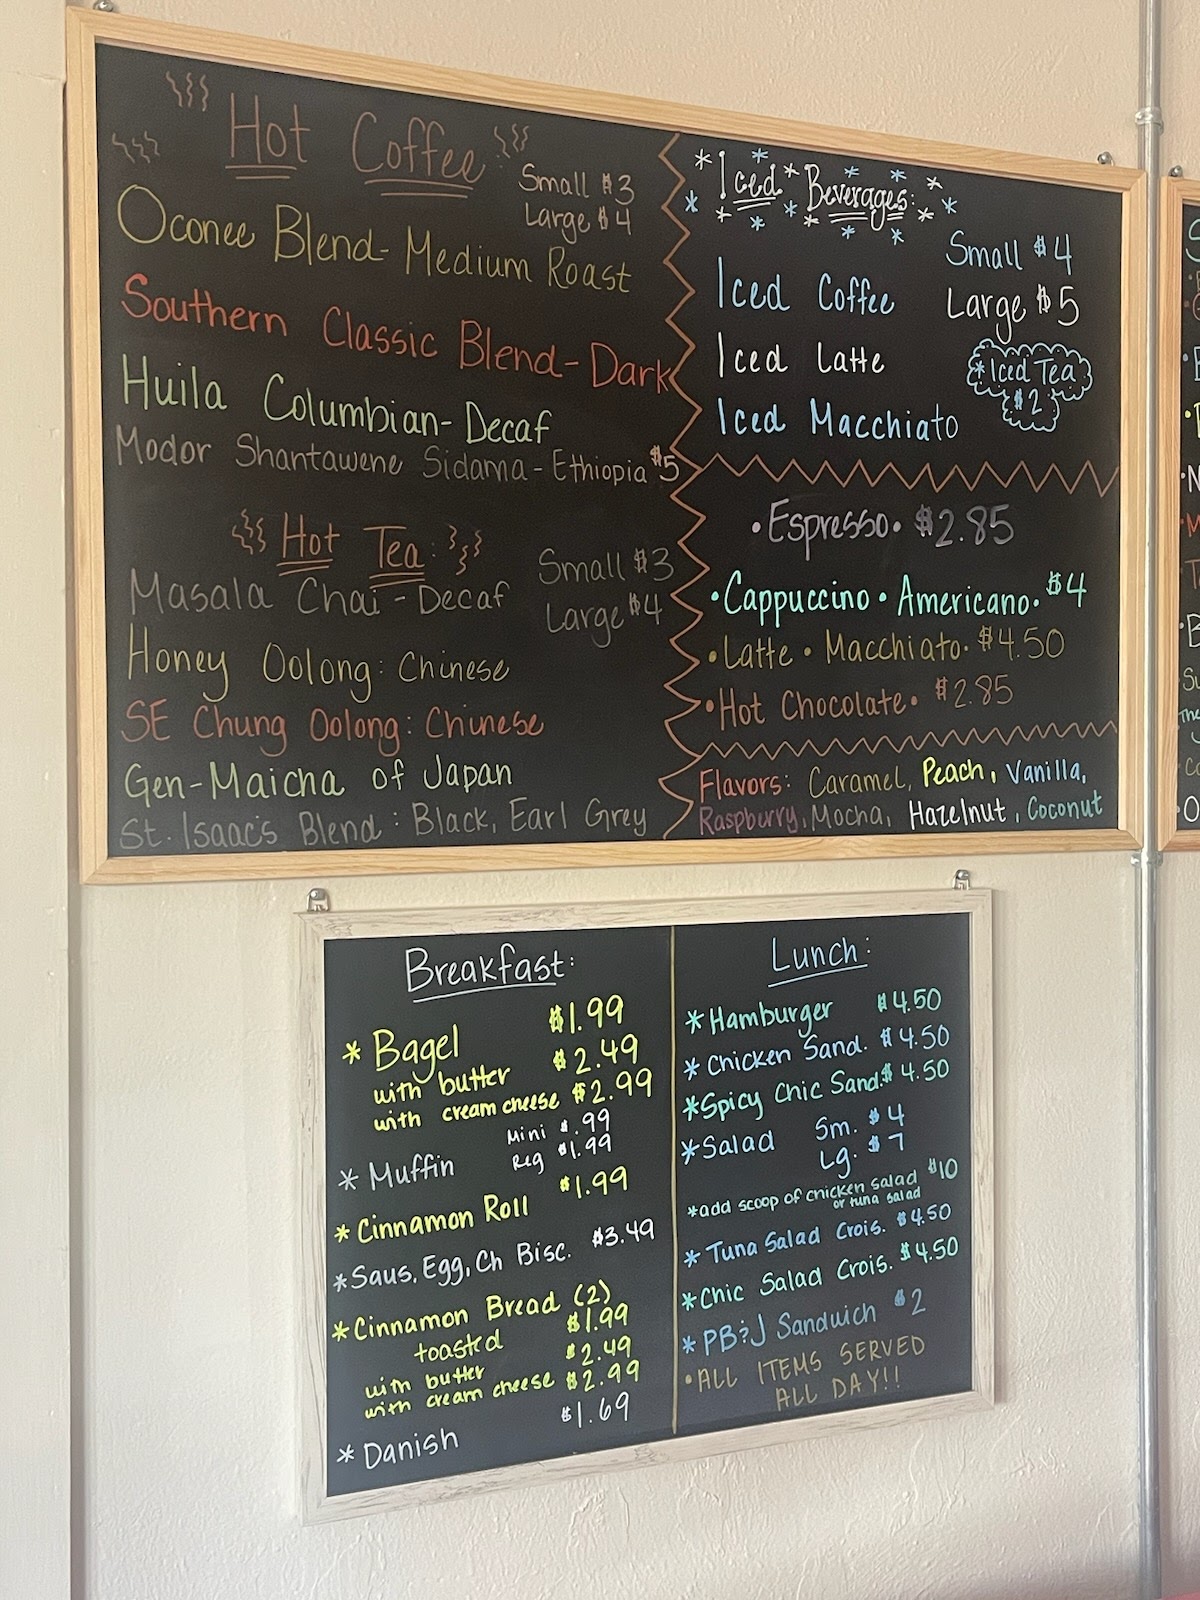 Hot Coffee:
Small $3
Large $4
Oconee Blend- Medium Roast
Southern Classic Blend- Dark
Huila Columbian- Decaf
Modor Shantawene Sidama - Ethiopia $5
Hot Tea:
Small $3
Large $4
Masala Chai - Decaf
Honey Oolong: Chinese
SE Chung Oolong: Chinese
Gen-Maicha of Japan
St. Isaac's Blend: Black, Earl Grey
Iced Beverages:
Small $4
Large $5
Iced Coffee
Iced Latte
*Iced Tea
$2
Iced Macchiato
• Espresso • $2.85
• Cappuccino • Americano • $4
• Latte • Macchiato • $4.50
• Hot Chocolate • $2.85
Flavors: Caramel, Peach, Vanilla,
Raspburry, Mocha, Hazelnut, Coconut
Breakfast:
* Bagel $1.99
with butter $2.49
with cream cheese $2.99
* Muffin Mini $.99
Reg $1.99
* Cinnamon Roll $1.99
* Saus, Egg, Ch Bisc. $3.49
* Cinnamon Bread (2)
toasted $1.99
with butter $2.49
with cream cheese $2.99
* Danish $1.69
Lunch:
* Hamburger $4.50
* Chicken Sand. $4.50
* Spicy Chic Sand. $4.50
* Salad Sm. $4
Lg. $7
*add scoop of chicken salad $10
or tuna salad
* Tuna Salad Crois. $4.50
* Chic Salad Crois. $4.50
* PB&J Sandwich $2
• ALL ITEMS SERVED
ALL DAY!!